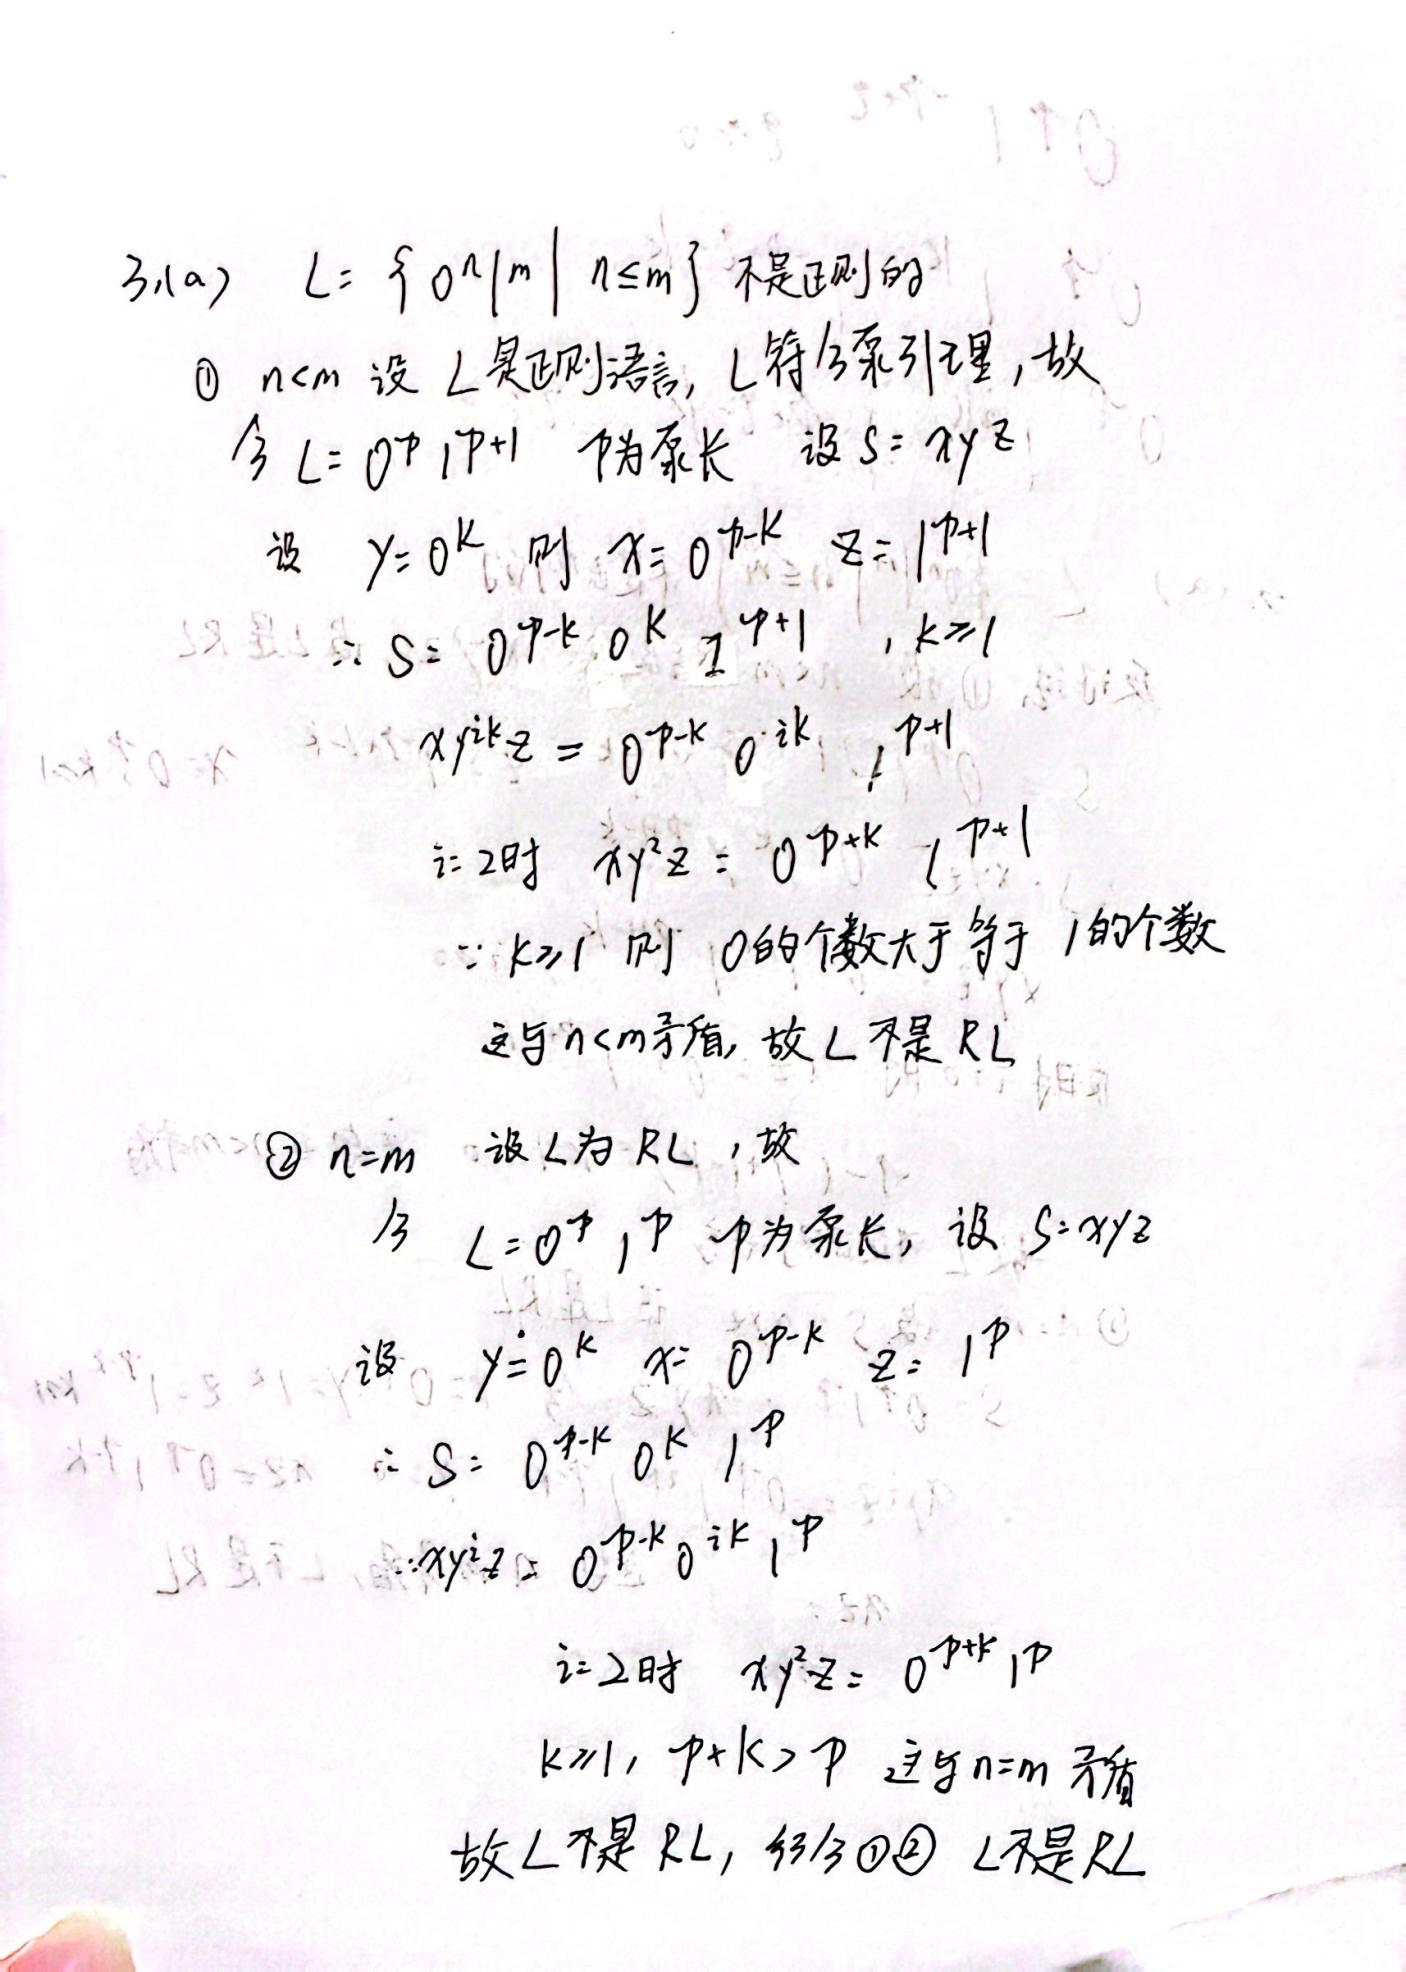 3.(a) L= {0ⁿ1ᵐ | n≤m} 不是正则的
① n<m 设 L是正则语言, L符合泵引理, 故
令 L= 0ᵖ1ᵖ⁺¹ p为泵长 设 S= xyz
设 y=0ᵏ 则 x=0ᵖ⁻ᵏ z=1ᵖ⁺¹
∴ S= 0ᵖ⁻ᵏ 0ᵏ 1ᵖ⁺¹ , k≥1
xyⁱᵏz = 0ᵖ⁻ᵏ 0ⁱᵏ 1ᵖ⁺¹
i=2时 xy²z = 0ᵖ⁺ᵏ 1ᵖ⁺¹
∵ k≥1 则 0的个数大于等于 1的个数
这与n<m矛盾, 故L不是RL
② n=m 设L为RL, 故
令 L=0ᵖ1ᵖ p为泵长, 设 S=xyz
设 y=0ᵏ x= 0ᵖ⁻ᵏ z= 1ᵖ
∴ S= 0ᵖ⁻ᵏ 0ᵏ 1ᵖ
∴xyⁱz= 0ᵖ⁻ᵏ0ⁱᵏ1ᵖ
i=2时 xy²z= 0ᵖ⁺ᵏ1ᵖ
k≥1, p+k>p 这与n=m 矛盾
故L不是RL, 综合①② L不是RL